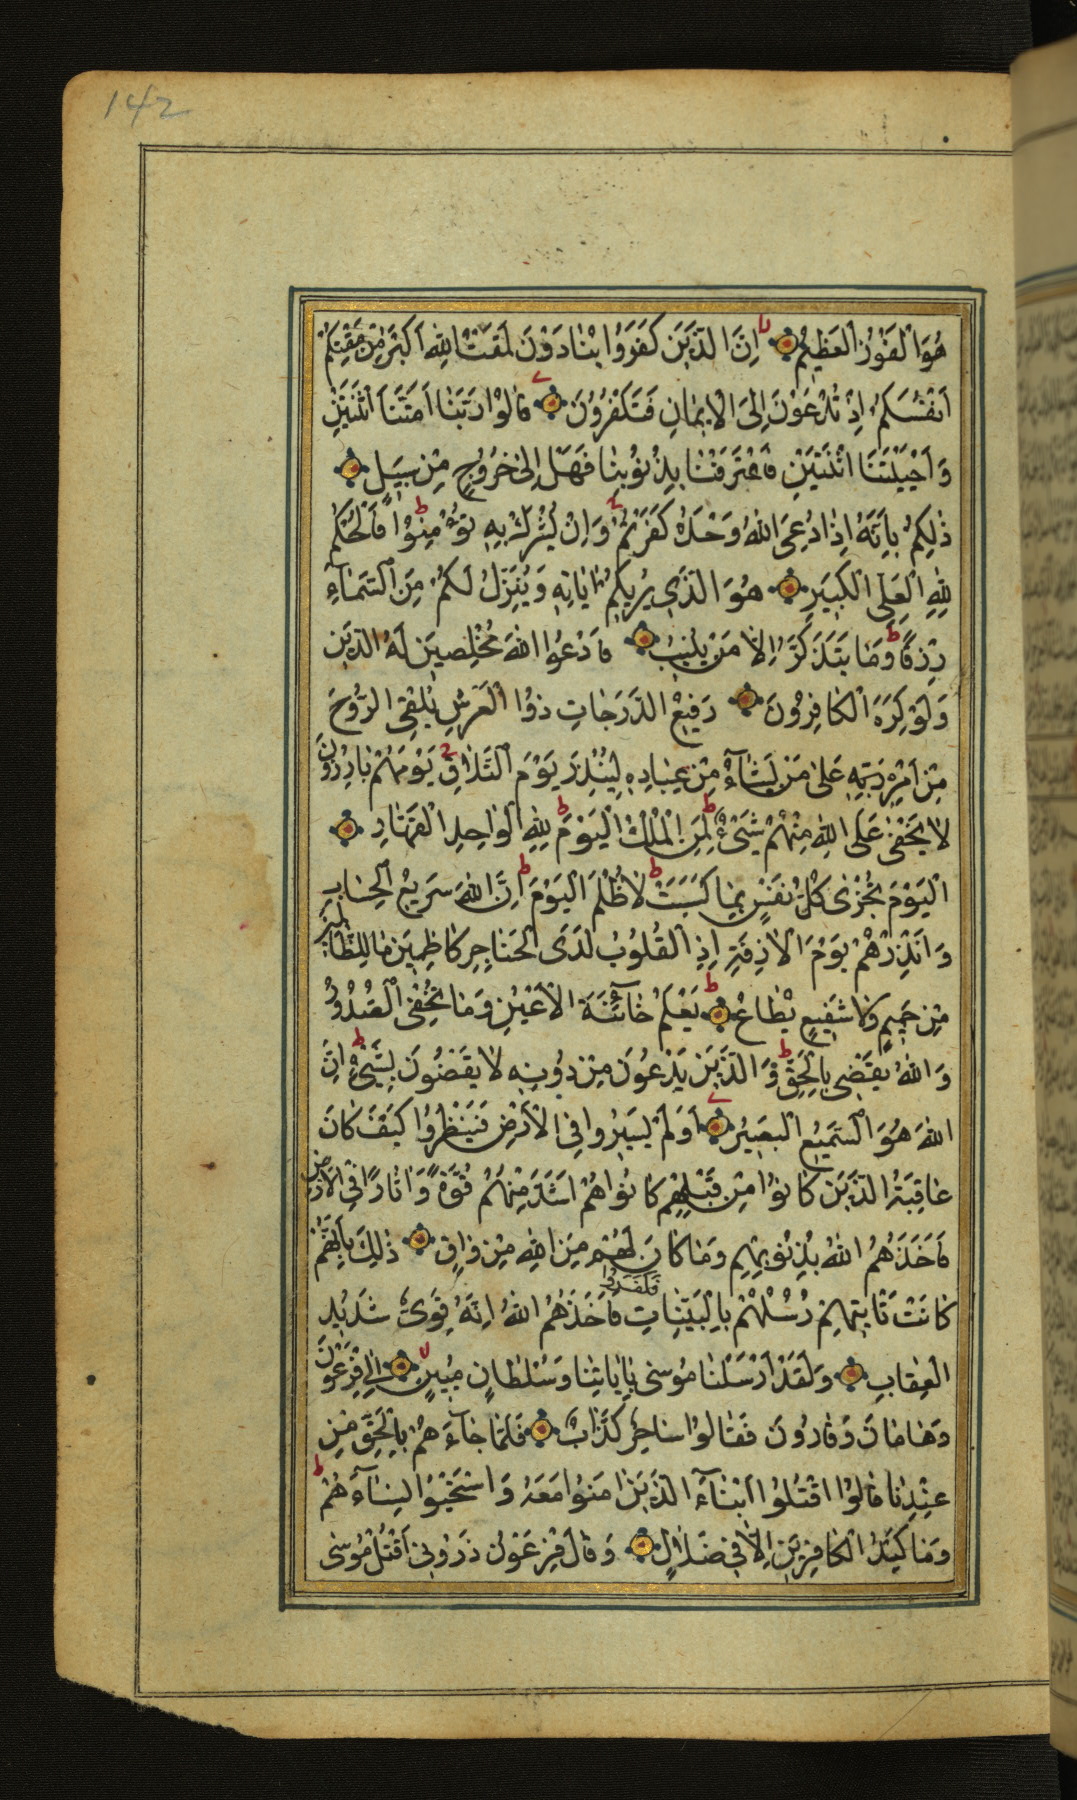 142
هُوَ الْفَوْزُ الْعَظِيمُ اِنَّ الَّذِينَ كَفَرُوا يُنَادَوْنَ لَمَقْتُ اللهِ اَكْبَرُ مِنْ مَقْتِكُمْ
اَنْفُسَكُمْ اِذْ تُدْعَوْنَ اِلَى الْاِيمَانِ فَتَكْفُرُونَ قَالُوا رَبَّنَا اَمَتَّنَا اثْنَتَيْنِ
وَاَحْيَيْتَنَا اثْنَتَيْنِ فَاعْتَرَفْنَا بِذُنُوبِنَا فَهَلْ اِلَى خُرُوجٍ مِنْ سَبِيلٍ
ذٰلِكُمْ بِاَنَّهُ اِذَا دُعِىَ اللهُ وَحْدَهُ كَفَرْتُمْ وَاِنْ يُشْرَكْ بِهِ تُؤْمِنُوا فَالْحُكْمُ
لِلّٰهِ الْعَلِىِّ الْكَبِيرِ هُوَ الَّذِى يُرِيكُمْ اٰيَاتِهِ وَيُنَزِّلُ لَكُمْ مِنَ السَّمَآءِ
رِزْقًا وَمَا يَتَذَكَّرُ اِلَّا مَنْ يُنِيبُ فَادْعُوا اللهَ مُخْلِصِينَ لَهُ الدِّينَ
وَلَوْ كَرِهَ الْكَافِرُونَ رَفِيعُ الدَّرَجَاتِ ذُو الْعَرْشِ يُلْقِى الرُّوحَ
مِنْ اَمْرِهِ رَبِّهِ عَلٰى مَنْ يَشَآءُ مِنْ عِبَادِهِ لِيُنْذِرَ يَوْمَ التَّلَاقِ يَوْمَ هُمْ بَارِزُونَ
لَا يَخْفٰى عَلَى اللهِ مِنْهُمْ شَىْءٌ لِمَنِ الْمُلْكُ الْيَوْمَ لِلّٰهِ الْوَاحِدِ الْقَهَّارِ
الْيَوْمَ تُجْزٰى كُلُّ نَفْسٍ بِمَا كَسَبَتْ لَا ظُلْمَ الْيَوْمَ اِنَّ اللهَ سَرِيعُ الْحِسَابِ
وَاَنْذِرْهُمْ يَوْمَ الْاٰزِفَةِ اِذِ الْقُلُوبُ لَدَى الْحَنَاجِرِ كَاظِمِينَ مَا لِلظَّالِمِينَ
مِنْ حَمِيمٍ وَلَا شَفِيعٍ يُطَاعُ يَعْلَمُ خَآئِنَةَ الْاَعْيُنِ وَمَا تُخْفِى الصُّدُورُ
وَاللهُ يَقْضِى بِالْحَقِّ وَالَّذِينَ يَدْعُونَ مِنْ دُونِهِ لَا يَقْضُونَ بِشَىْءٍ اِنَّ
اللهَ هُوَ السَّمِيعُ الْبَصِيرُ اَوَلَمْ يَسِيرُوا فِى الْاَرْضِ فَيَنْظُرُوا كَيْفَ كَانَ
عَاقِبَةُ الَّذِينَ كَانُوا مِنْ قَبْلِهِمْ كَانُوا هُمْ اَشَدَّ مِنْهُمْ قُوَّةً وَاٰثَارًا فِى الْاَرْضِ
فَاَخَذَهُمُ اللهُ بِذُنُوبِهِمْ وَمَا كَانَ لَهُمْ مِنَ اللهِ مِنْ وَاقٍ ذٰلِكَ بِاَنَّهُمْ
كَانَتْ تَاْتِيهِمْ رُسُلُهُمْ بِالْبَيِّنَاتِ فَكَفَرُوا فَاَخَذَهُمُ اللهُ اِنَّهُ قَوِىٌّ شَدِيدُ
الْعِقَابِ وَلَقَدْ اَرْسَلْنَا مُوسٰى بِاٰيَاتِنَا وَسُلْطَانٍ مُبِينٍ اِلٰى فِرْعَوْنَ
وَهَامَانَ وَقَارُونَ فَقَالُوا سَاحِرٌ كَذَّابٌ فَلَمَّا جَآءَهُمْ بِالْحَقِّ مِنْ
عِنْدِنَا قَالُوا اقْتُلُوا اَبْنَآءَ الَّذِينَ اٰمَنُوا مَعَهُ وَاسْتَحْيُوا نِسَآءَهُمْ
وَمَا كَيْدُ الْكَافِرِينَ اِلَّا فِى ضَلَالٍ وَقَالَ فِرْعَوْنُ ذَرُونِى اَقْتُلْ مُوسٰى